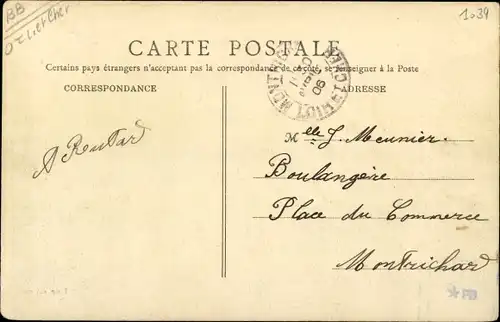 BB
1039
CARTE POSTALE
Certains pays étrangers n'acceptant pas la correspondance de ce côté, se renseigner à la Poste
CORRESPONDANCE
ADRESSE
Melle J. Meunier
Boulangère
Place du Commerce
Montrichard
LOIR ET CHER
06